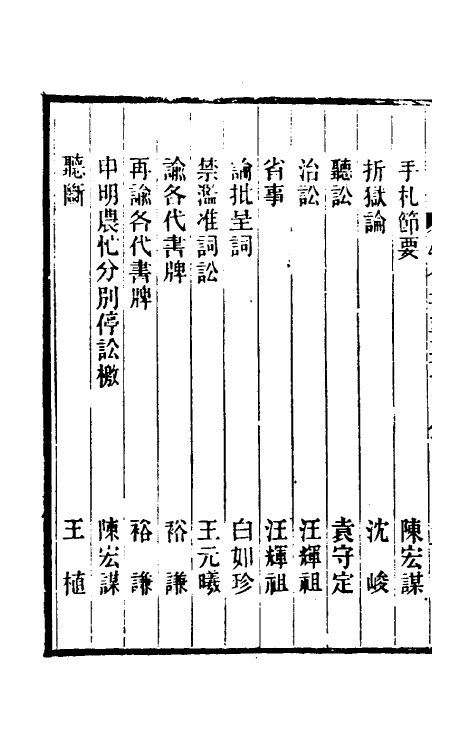 手札節要　陳宏謀
折獄論　沈峻
聽訟　袁守定
治訟　汪輝祖
省事　汪輝祖
論批呈詞　白如珍
禁濫准詞訟　王元曦
諭各代書牌　裕謙
再諭各代書牌　裕謙
申明農忙分別停訟檄　陳宏謀
聽斷　王植